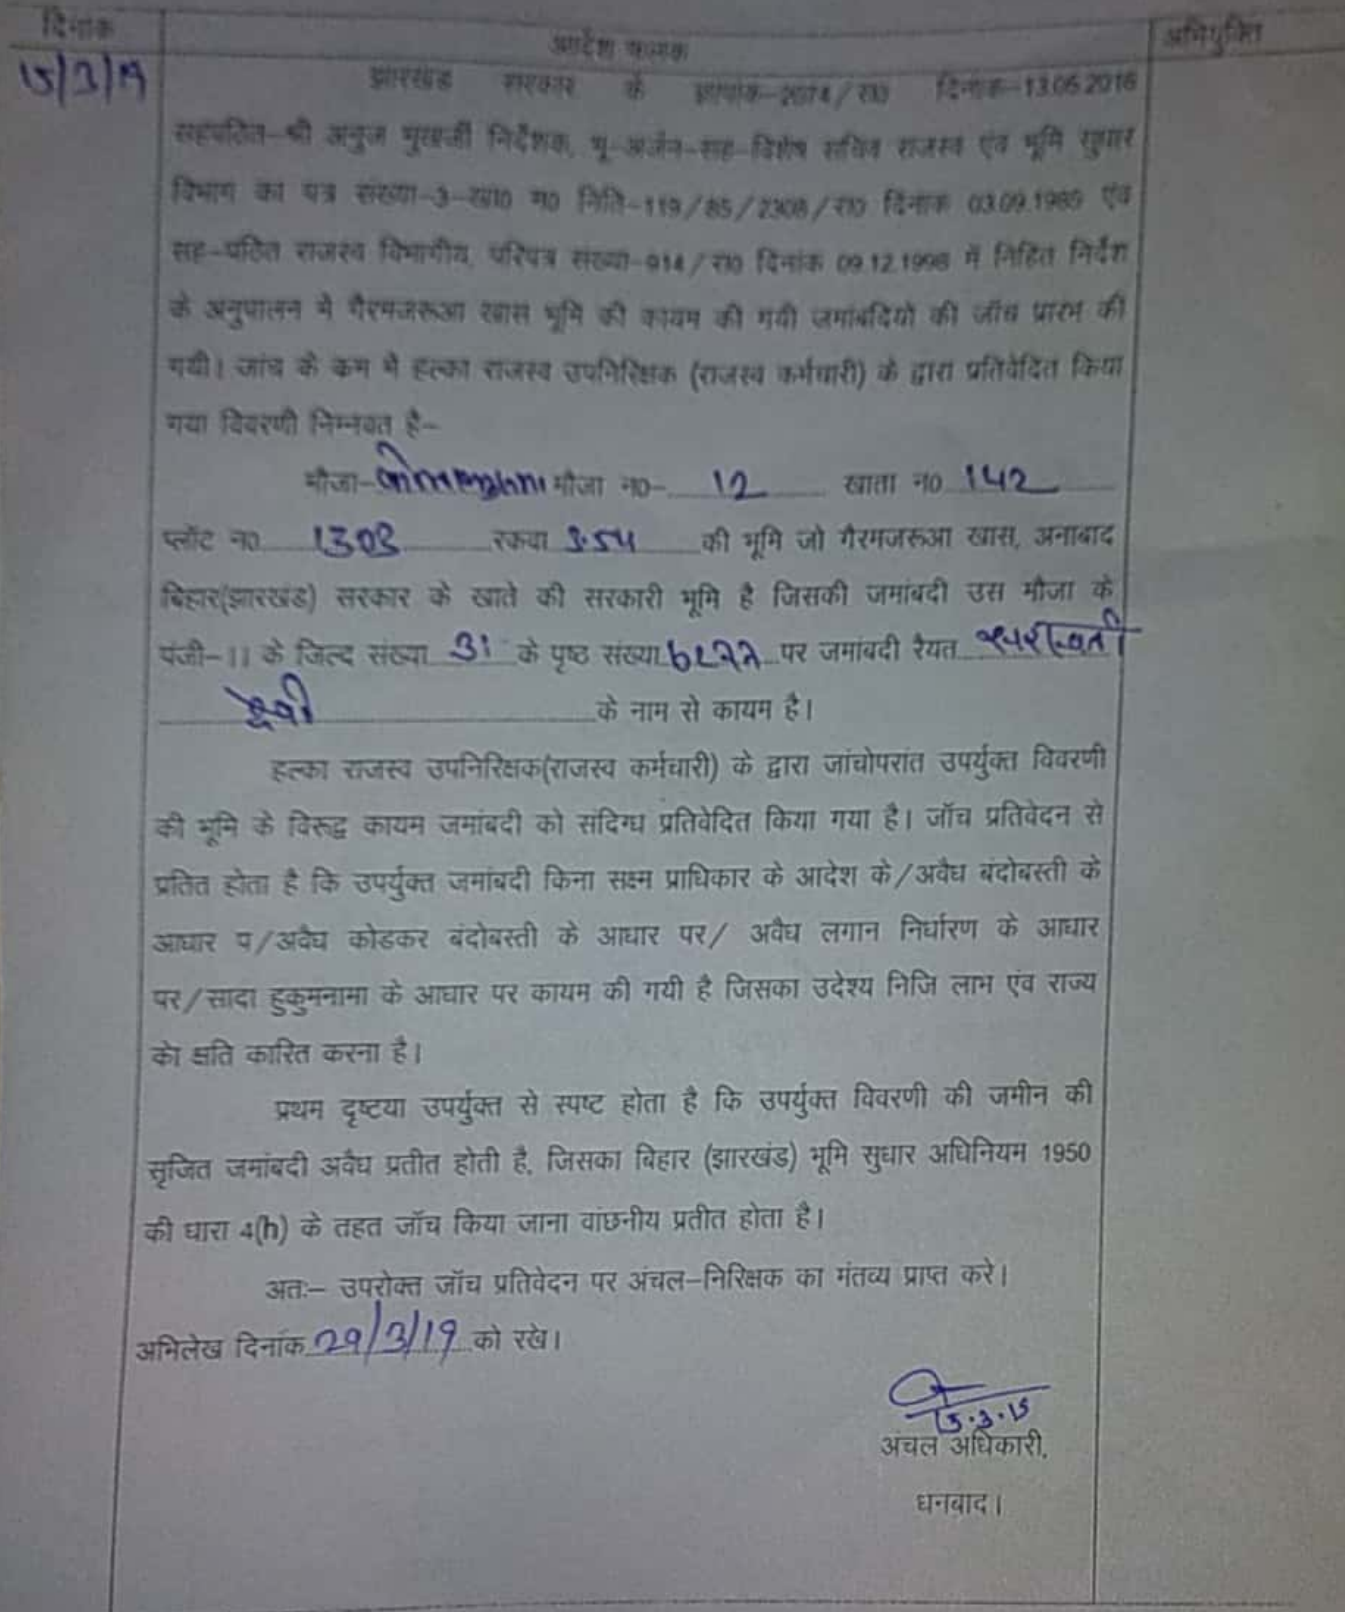 दिनांक
आदेश फलक
अभियुक्ति
15/3/19
झारखंड सरकार के ज्ञापांक-2074/रा0 दिनांक-13.05.2016
सहपठित-श्री अनुज मुखर्जी निर्देशक, भू-अर्जन-सह-विशेष सचिव राजस्व एंव भूमि सुधार
विभाग का पत्र संख्या-3-खा0 म0 निति-119/85/2308/रा0 दिनांक 03.09.1985 एंव
सह-पठित राजस्व विभागीय, परिपत्र संख्या-914/रा0 दिनांक 09.12.1998 में निहित निर्देश
के अनुपालन मे गैरमजरूआ खास भूमि की कायम की गयी जमांबदियो की जाँच प्रारंभ की
गयी। जांच के कम मे हल्का राजस्व उपनिरिक्षक (राजस्व कर्मचारी) के द्वारा प्रतिवेदित किया
गया विवरणी निम्नवत है-
मौजा- मौजा न0- 12 खाता न0 142
प्लॉट न0 1303 रकवा 3.54 की भूमि जो गैरमजरूआ खास, अनाबाद
बिहार(झारखंड) सरकार के खाते की सरकारी भूमि है जिसकी जमांबदी उस मौजा के
पंजी-।। के जिल्द संख्या 31 के पृष्ठ संख्या पर जमांबदी रैयत सरस्वती
देवी के नाम से कायम है।
हल्का राजस्व उपनिरिक्षक(राजस्व कर्मचारी) के द्वारा जांचोपरांत उपर्युक्त विवरणी
की भूमि के विरूद्ध कायम जमांबदी को संदिग्ध प्रतिवेदित किया गया है। जाँच प्रतिवेदन से
प्रतित होता है कि उपर्युक्त जमांबदी किना सक्ष्म प्राधिकार के आदेश के/अवैध बंदोबस्ती के
आधार प/अवैध कोडकर बंदोबस्ती के आधार पर/ अवैध लगान निर्धारण के आधार
पर/सादा हुकुमनामा के आधार पर कायम की गयी है जिसका उदेश्य निजि लाभ एंव राज्य
को क्षति कारित करना है।
प्रथम दृष्टया उपर्युक्त से स्पष्ट होता है कि उपर्युक्त विवरणी की जमीन की
सृजित जमांबदी अवैध प्रतीत होती है, जिसका बिहार (झारखंड) भूमि सुधार अधिनियम 1950
की धारा 4(h) के तहत जाँच किया जाना वांछनीय प्रतीत होता है।
अतः- उपरोक्त जाँच प्रतिवेदन पर अंचल-निरिक्षक का मंतव्य प्राप्त करे।
अभिलेख दिनांक 29/3/19 को रखे।
15.3.19
अंचल अधिकारी,
धनबाद।